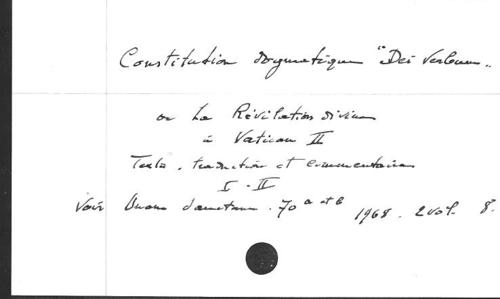 Constitution dogmatique "Dei Verbum"
ou La Révélation divine
à Vatican II
Texte, traduction et commentaires
I - II
Voir Unam Sanctam. 70 a et b 1968. 2 vol. 8.